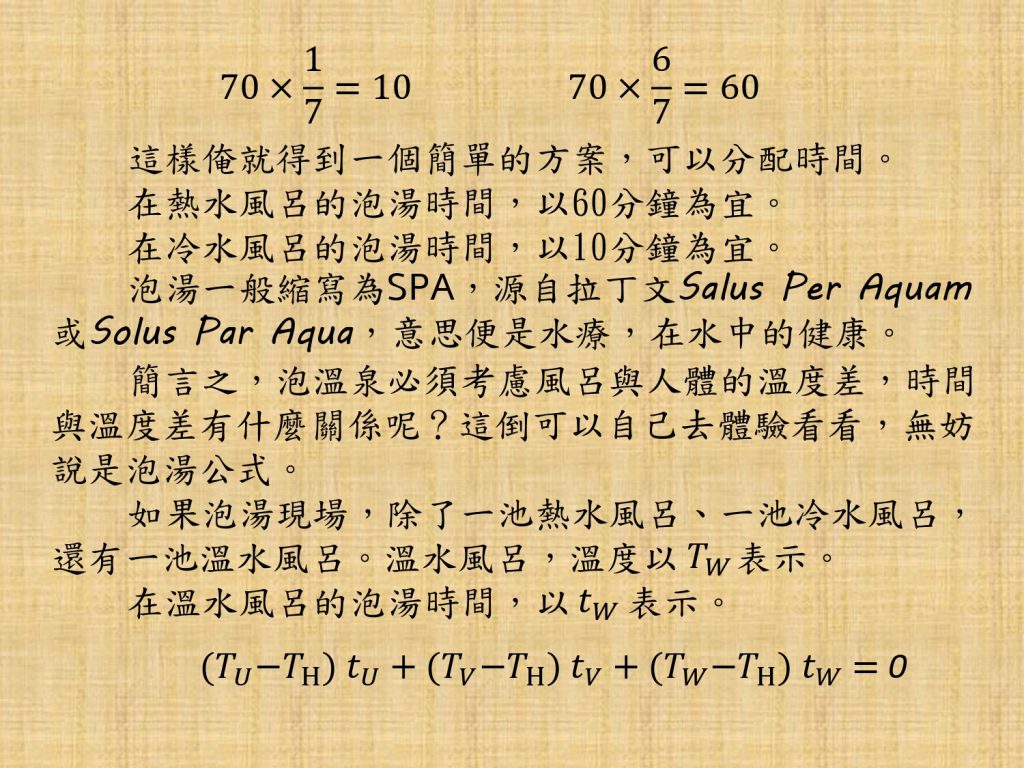 70 × 1/7 = 10  70 × 6/7 = 60
這樣俺就得到一個簡單的方案，可以分配時間。
在熱水風呂的泡湯時間，以60分鐘為宜。
在冷水風呂的泡湯時間，以10分鐘為宜。
泡湯一般縮寫為SPA，源自拉丁文Salus Per Aquam
或Solus Par Aqua，意思便是水療，在水中的健康。
簡言之，泡溫泉必須考慮風呂與人體的溫度差，時間
與溫度差有什麼關係呢？這倒可以自己去體驗看看，無妨
說是泡湯公式。
如果泡湯現場，除了一池熱水風呂、一池冷水風呂，
還有一池溫水風呂。溫水風呂，溫度以 T_W 表示。
在溫水風呂的泡湯時間，以 t_W 表示。
(T_U−T_H) t_U + (T_V−T_H) t_V + (T_W−T_H) t_W = 0